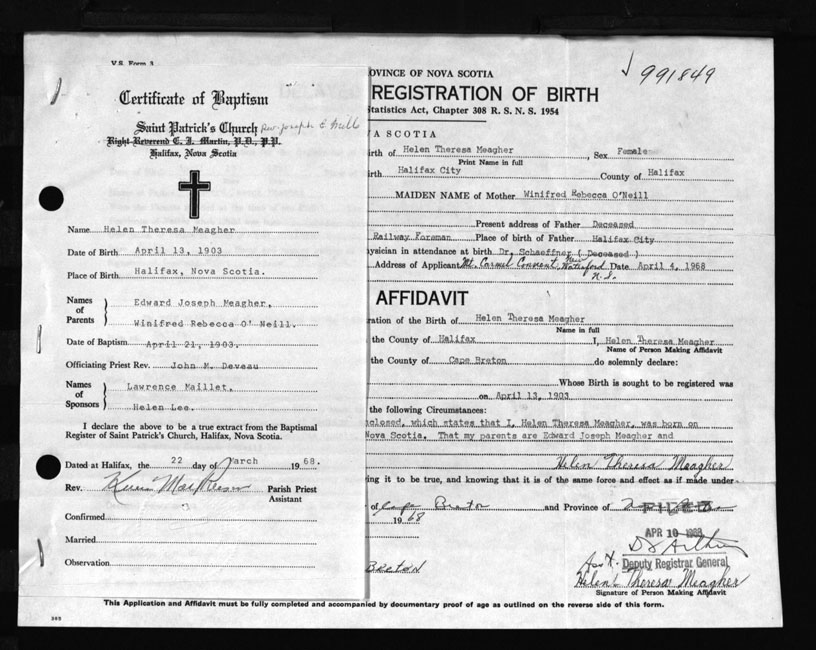 V.S. Form 3
Certificate of Baptism
Saint Patrick's Church Rev. Joseph E
Right Reverend C. J. Martin, P.D., P.P.
Halifax, Nova Scotia
Name Helen Theresa Meagher
Date of Birth April 13, 1903
Place of Birth Halifax, Nova Scotia.
Names of Parents
Edward Joseph Meagher,
Winifred Rebecca O' Neill.
Date of Baptism April 21, 1903.
Officiating Priest Rev. John M. Deveau
Names of Sponsors
Lawrence Maillet.
Helen Lee.
I declare the above to be a true extract from the Baptismal
Register of Saint Patrick's Church, Halifax, Nova Scotia.
Dated at Halifax, the 22 day of March 1968.
Rev. Parish Priest
Assistant
Confirmed
Married
Observation
991849
OVINCE OF NOVA SCOTIA
REGISTRATION OF BIRTH
Statistics Act, Chapter 308 R. S. N. S. 1954
A SCOTIA
irth of Helen Theresa Meagher, Sex Female
Print Name in full
irth Halifax City County of Halifax
MAIDEN NAME of Mother Winifred Rebecca O'Neill
Present address of Father Deceased
Railway Foreman Place of birth of Father Halifax City
ysician in attendance at birth Dr. Schaeffner ( Deceased )
Address of Applicant Mt. Carmel Convent, New Waterford N.S. Date April 4, 1968
AFFIDAVIT
ration of the Birth of Helen Theresa Meagher
Name in full
the County of Halifax I, Helen Theresa Meagher
Name of Person Making Affidavit
the County of Cape Breton do solemnly declare:
Whose Birth is sought to be registered was
on April 13, 1903
the following Circumstances:
nclosed, which states that I, Helen Theresa Meagher, was born on
Nova Scotia. That my parents are Edward Joseph Meagher and
Helen Theresa Meagher
ing it to be true, and knowing that it is of the same force and effect as if made under
of Cape Breton and Province of
FILED
1968
APR 10 1968
Asst. Deputy Registrar General
BRETON
Helen Theresa Meagher
Signature of Person Making Affidavit
This Application and Affidavit must be fully completed and accompanied by documentary proof of age as outlined on the reverse side of this form.